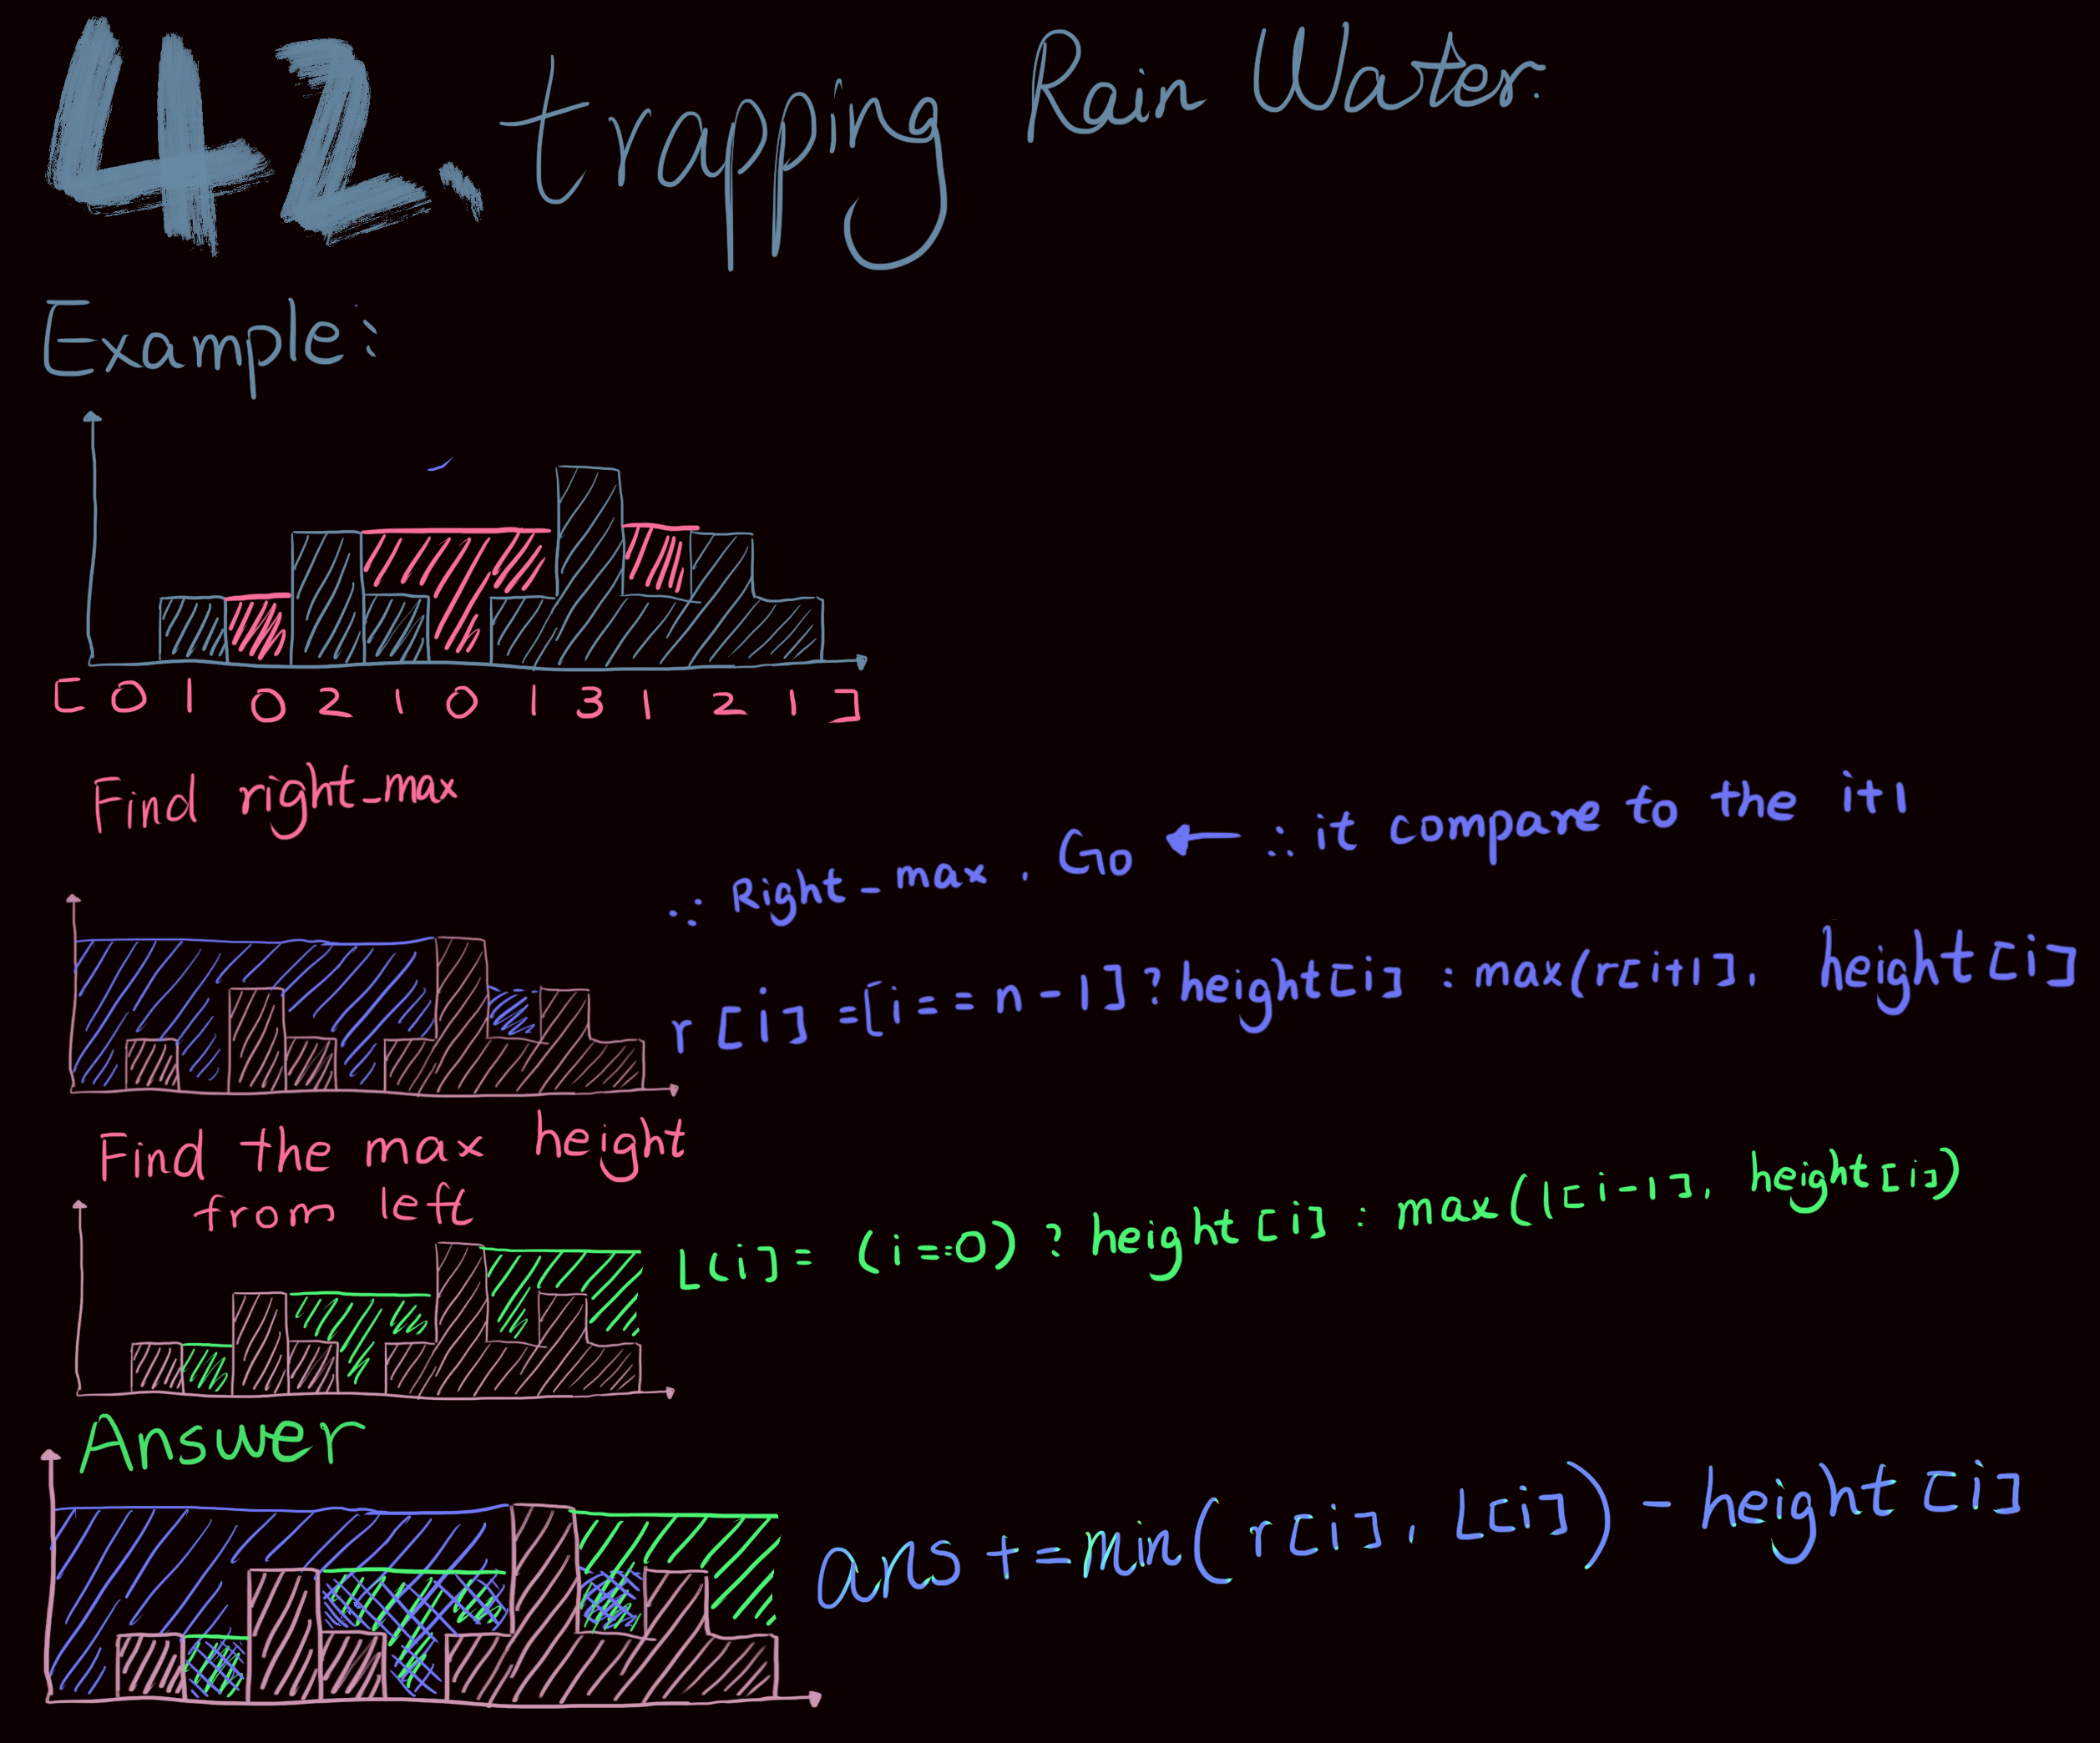 42. trapping Rain Water.
Example:
[ 0 1 0 2 1 0 1 3 1 2 1 ]
Find right_max
∵ Right_max . Go ← ∴ it compare to the i+1
r[i] =[i==n-1]? height[i] : max(r[i+1], height[i]
Find the max height
from left
L[i]= (i==0) ? height[i] : max(l[i-1], height[i])
Answer
ans +=min( r[i], L[i]) - height[i]